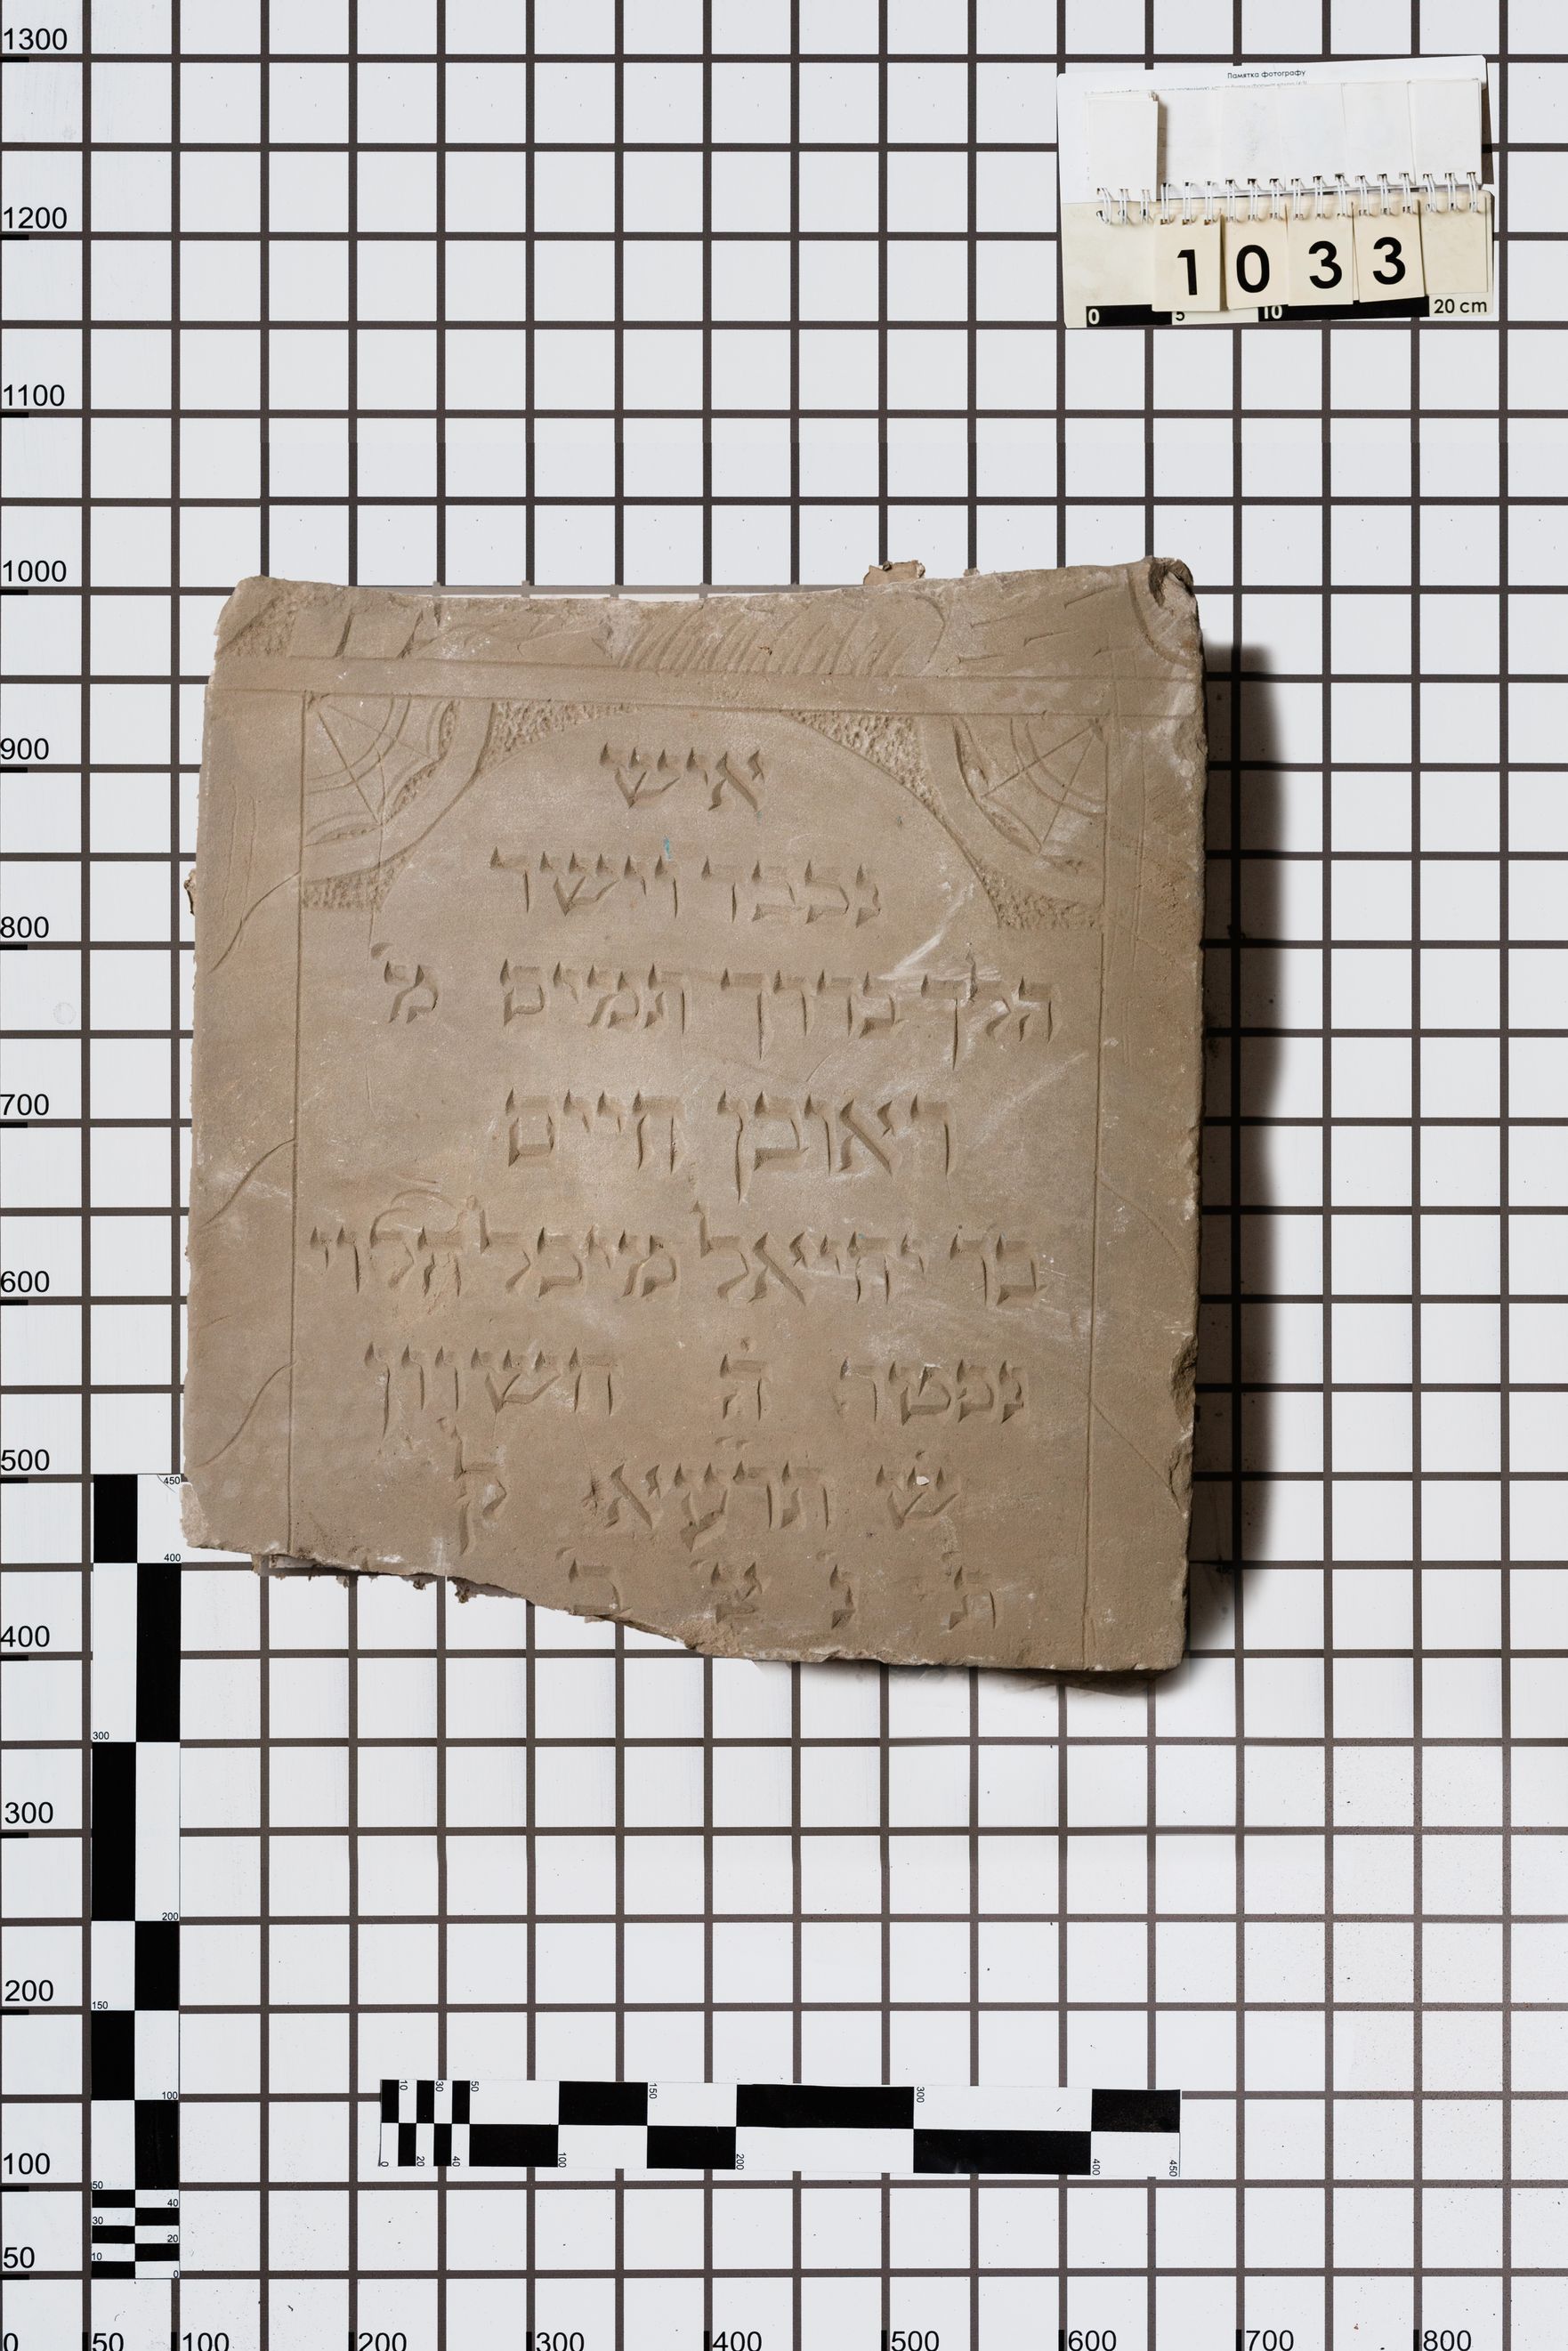 Памятка фотографу
1 0 3 3
0 5 10 20 cm
איש
נכבד וישר
הלך בדרך תמים מ'
ראובן חיים
בר יחיאל מיכל הלוי
נפטר ה' חשוון
ש' תרעא ל
ת' נ' צ' ב'
1300
1200
1100
1000
900
800
700
600
500
400
300
200
100
50
0 50 100 200 300 400 500 600 700 800
450
400
300
200
150
100
50
40
30
20
10
0
10 30 50 150 300
0 20 40 100 200 400 450